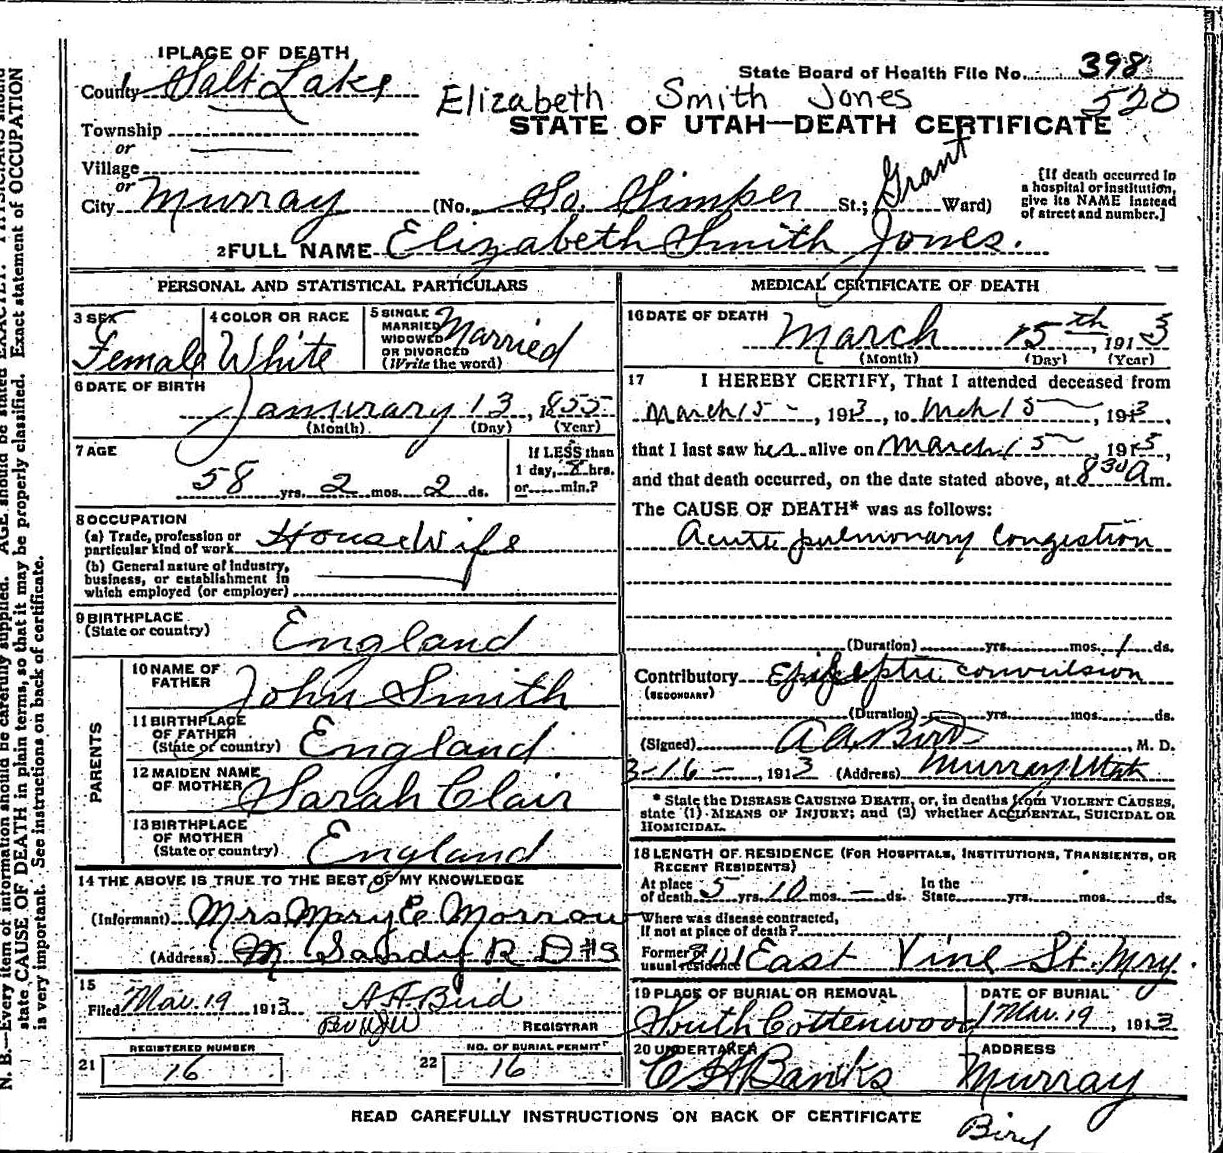 1 PLACE OF DEATH
County Salt Lake
State Board of Health File No. 398
520
Elizabeth Smith Jones
STATE OF UTAH—DEATH CERTIFICATE
Township
or
Village
or
City Murray (No. So. St.; Grant Ward)
[If death occurred in a hospital or institution, give its NAME instead of street and number.]
2 FULL NAME Elizabeth Smith Jones.
PERSONAL AND STATISTICAL PARTICULARS
3 SEX Female
4 COLOR OR RACE White
5 SINGLE MARRIED WIDOWED OR DIVORCED (Write the word) Married
6 DATE OF BIRTH
Janurary 13, 1855
(Month) (Day) (Year)
7 AGE
58 yrs. 2 mos. 2 ds.
If LESS than 1 day, hrs. or min.?
8 OCCUPATION
(a) Trade, profession or particular kind of work Housewife
(b) General nature of industry, business, or establishment in which employed (or employer)
9 BIRTHPLACE (State or country) England
PARENTS
10 NAME OF FATHER John Smith
11 BIRTHPLACE OF FATHER (State or country) England
12 MAIDEN NAME OF MOTHER Sarah Clair
13 BIRTHPLACE OF MOTHER (State or country) England
14 THE ABOVE IS TRUE TO THE BEST OF MY KNOWLEDGE
(Informant) Mrs Mary E Morrow
(Address) Sandy R D #3
15
Filed Mar. 19 1913 A A Bird
REGISTRAR
REGISTERED NUMBER
21 16
NO. OF BURIAL PERMIT
22 16
MEDICAL CERTIFICATE OF DEATH
16 DATE OF DEATH March 15th, 1913
(Month) (Day) (Year)
17 I HEREBY CERTIFY, That I attended deceased from
March 15 - , 1913, to Mch 15, 1913,
that I last saw her alive on March 15, 1913,
and that death occurred, on the date stated above, at 8 30 A m.
The CAUSE OF DEATH* was as follows:
Acute pulmonary Congestion
(Duration) yrs. mos. 1 ds.
Contributory (SECONDARY) Epileptic convulsion
(Duration) yrs. mos. ds.
(Signed) A A Bird, M. D.
3-16-, 1913 (Address) Murray Utah
* State the DISEASE CAUSING DEATH, or, in deaths from VIOLENT CAUSES,
state (1) MEANS OF INJURY; and (2) whether ACCIDENTAL, SUICIDAL OR
HOMICIDAL.
18 LENGTH OF RESIDENCE (FOR HOSPITALS, INSTITUTIONS, TRANSIENTS, OR
RECENT RESIDENTS)
At place of death 5 yrs. 10 mos. — ds. In the State yrs. mos. ds.
Where was disease contracted,
If not at place of death?
Former or usual residence East Vine St. Mry.
19 PLACE OF BURIAL OR REMOVAL South Cottenwood
DATE OF BURIAL Mar. 19, 1913
20 UNDERTAKER Banks
ADDRESS Murray
READ CAREFULLY INSTRUCTIONS ON BACK OF CERTIFICATE
Bird
N. B.—Every item of information should be carefully supplied. AGE should be stated EXACTLY. PHYSICIANS should
state CAUSE OF DEATH in plain terms, so that it may be properly classified. Exact statement of OCCUPATION
is very important. See instructions on back of certificate.